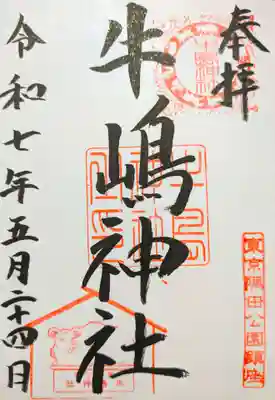 奉拝
牛嶋神社
令和七年五月二十四日
東京隅田公園鎮座
牛嶋神社